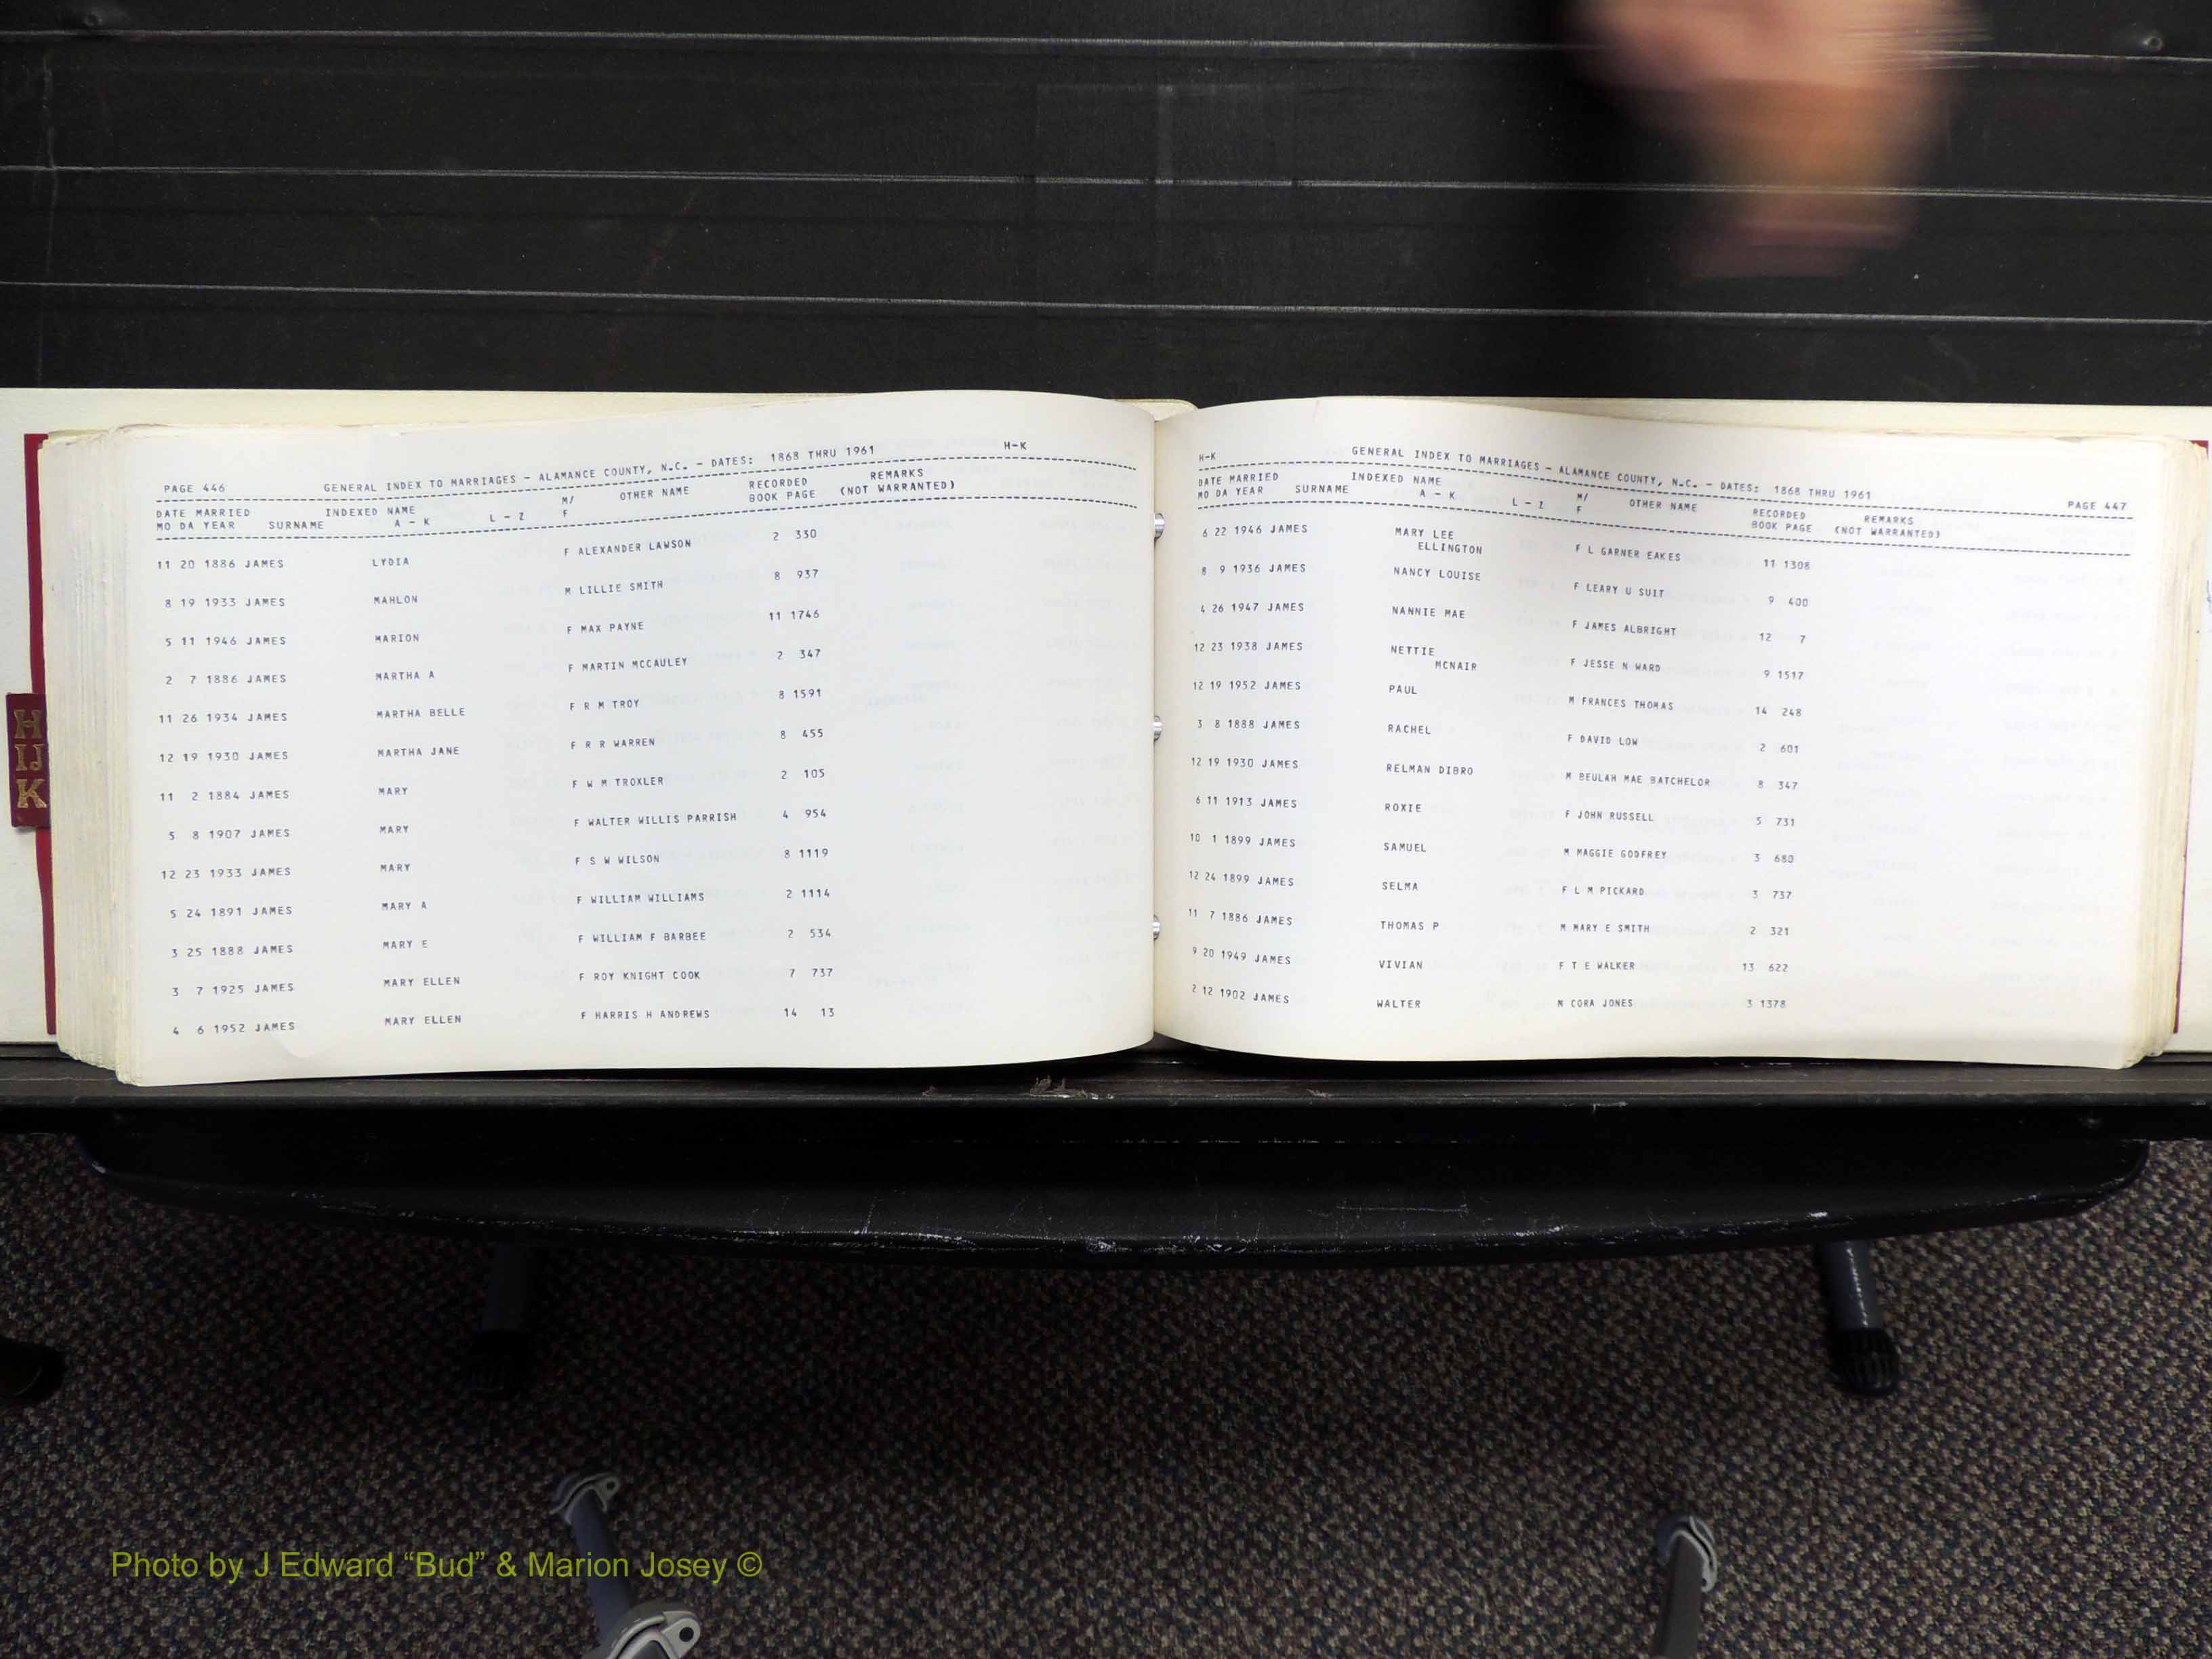 PAGE 446 GENERAL INDEX TO MARRIAGES - ALAMANCE COUNTY, N.C. - DATES: 1868 THRU 1961 H-K
DATE MARRIED INDEXED NAME M/ OTHER NAME RECORDED REMARKS
MO DA YEAR SURNAME A - K L - Z F BOOK PAGE (NOT WARRANTED)
11 20 1886 JAMES LYDIA F ALEXANDER LAWSON 2 330
8 19 1933 JAMES MAHLON M LILLIE SMITH 8 937
5 11 1946 JAMES MARION F MAX PAYNE 11 1746
2 7 1886 JAMES MARTHA A F MARTIN MCCAULEY 2 347
11 26 1934 JAMES MARTHA BELLE F R M TROY 8 1591
12 19 1930 JAMES MARTHA JANE F R R WARREN 8 455
11 2 1884 JAMES MARY F W M TROXLER 2 105
5 8 1907 JAMES MARY F WALTER WILLIS PARRISH 4 954
12 23 1933 JAMES MARY F S W WILSON 8 1119
5 24 1891 JAMES MARY A F WILLIAM WILLIAMS 2 1114
3 25 1888 JAMES MARY E F WILLIAM F BARBEE 2 534
3 7 1925 JAMES MARY ELLEN F ROY KNIGHT COOK 7 737
4 6 1952 JAMES MARY ELLEN F HARRIS H ANDREWS 14 13
H-K GENERAL INDEX TO MARRIAGES - ALAMANCE COUNTY, N.C. - DATES: 1868 THRU 1961 PAGE 447
DATE MARRIED INDEXED NAME M/ OTHER NAME RECORDED REMARKS
MO DA YEAR SURNAME A - K L - Z F BOOK PAGE (NOT WARRANTED)
6 22 1946 JAMES MARY LEE F L GARNER EAKES 11 1308
ELLINGTON
8 9 1936 JAMES NANCY LOUISE F LEARY U SUIT 9 400
4 26 1947 JAMES NANNIE MAE F JAMES ALBRIGHT 12 7
12 23 1938 JAMES NETTIE F JESSE N WARD 9 1517
MCNAIR
12 19 1952 JAMES PAUL M FRANCES THOMAS 14 248
3 8 1888 JAMES RACHEL F DAVID LOW 2 601
12 19 1930 JAMES RELMAN DIBRO M BEULAH MAE BATCHELOR 8 347
6 11 1913 JAMES ROXIE F JOHN RUSSELL 5 731
10 1 1899 JAMES SAMUEL M MAGGIE GODFREY 3 680
12 24 1899 JAMES SELMA F L M PICKARD 3 737
11 7 1886 JAMES THOMAS P M MARY E SMITH 2 321
9 20 1949 JAMES VIVIAN F T E WALKER 13 622
2 12 1902 JAMES WALTER M CORA JONES 3 1378
H
IJ
K
Photo by J Edward “Bud” & Marion Josey ©